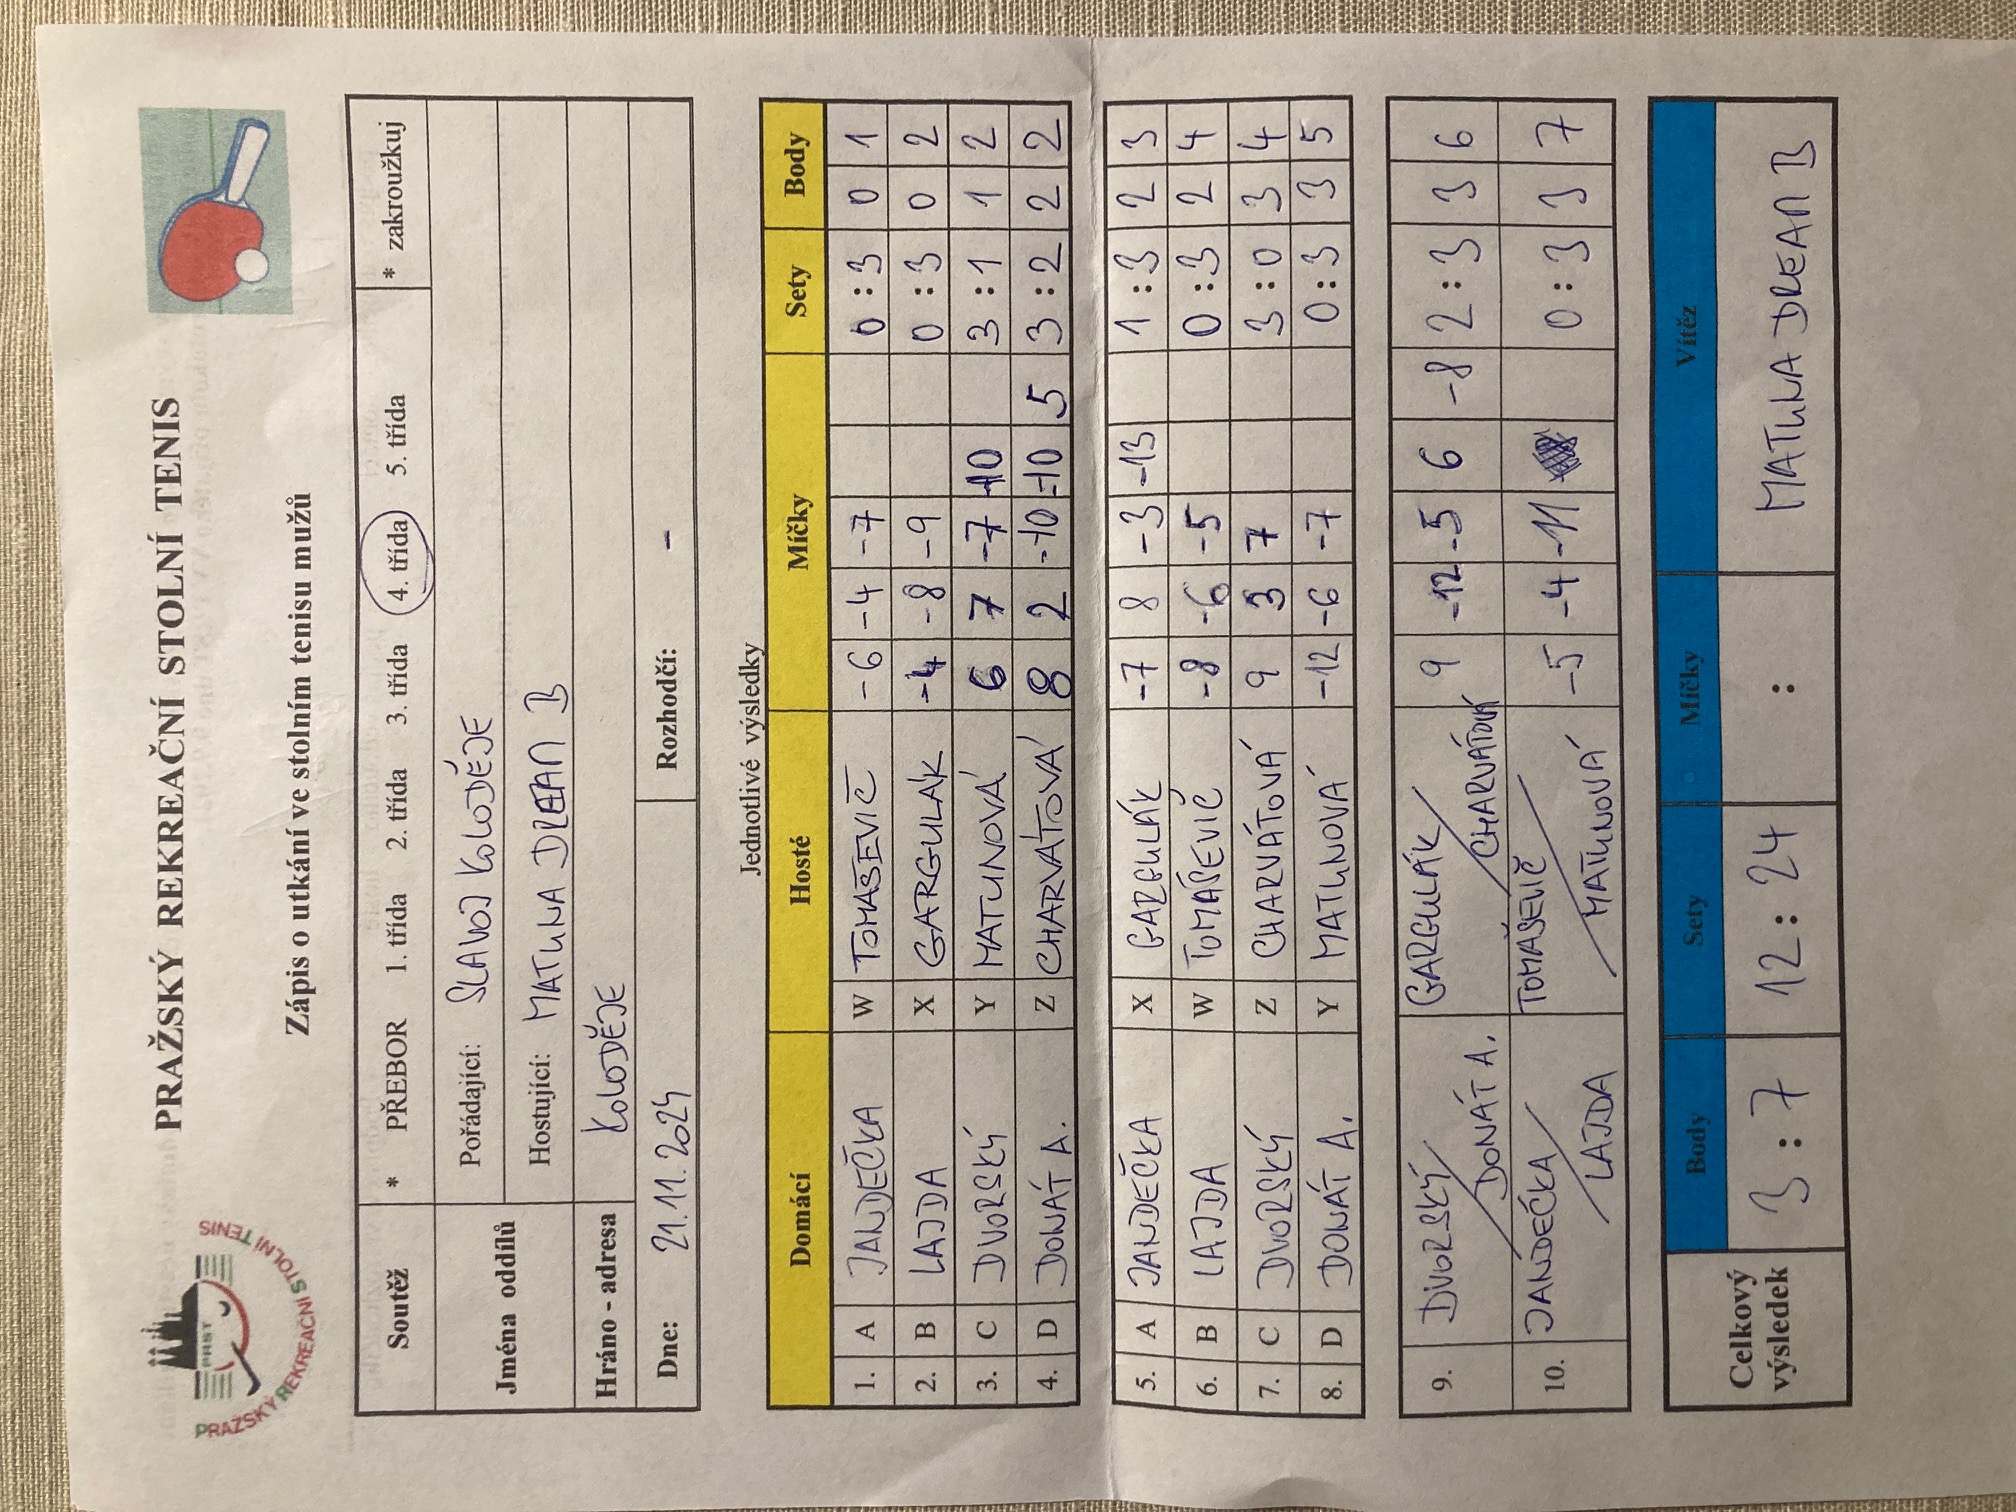 PRAŽSKÝ REKREAČNÍ STOLNÍ TENIS
PRAST
PRAŽSKÝ REKREAČNÍ STOLNÍ TENIS
Zápis o utkání ve stolním tenisu mužů
Soutěž * PŘEBOR 1. třída 2. třída 3. třída 4. třída 5. třída * zakroužkuj
Jména oddílů Pořádající: SLAVOJ KOLODĚJE
Hostující: MATUNA DREAM B
Hráno - adresa KOLODĚJE
Dne: 21.11.2024 Rozhodčí: -
Jednotlivé výsledky
Domácí Hosté Míčky Sety Body
1. A JANDEČKA W TOMAŠEVIČ -6 -4 -7 0 : 3 0 1
2. B LAJDA X GARGULÁK -4 -8 -9 0 : 3 0 2
3. C DVORSKÝ Y MATUNOVÁ 6 7 -7 10 3 : 1 1 2
4. D DONÁT A. Z CHARVÁTOVÁ 8 2 -10 -10 5 3 : 2 2 2
5. A JANDEČKA X GARGULÁK -7 8 -3 -13 1 : 3 2 3
6. B LAJDA W TOMAŠEVIČ -8 -6 -5 0 : 3 2 4
7. C DVORSKÝ Z CHARVÁTOVÁ 9 3 7 3 : 0 3 4
8. D DONÁT A. Y MATUNOVÁ -12 -6 -7 0 : 3 3 5
9. DVORSKÝ/DONÁT A. GARGULÁK/CHARVÁTOVÁ 9 -12 -5 6 -8 2 : 3 3 6
10. JANDEČKA/LAJDA TOMAŠEVIČ/MATUNOVÁ -5 -4 -11 0 : 3 3 7
Celkový výsledek Body Sety Míčky Vítěz
3 : 7 12 : 24 : MATUNA DREAM B